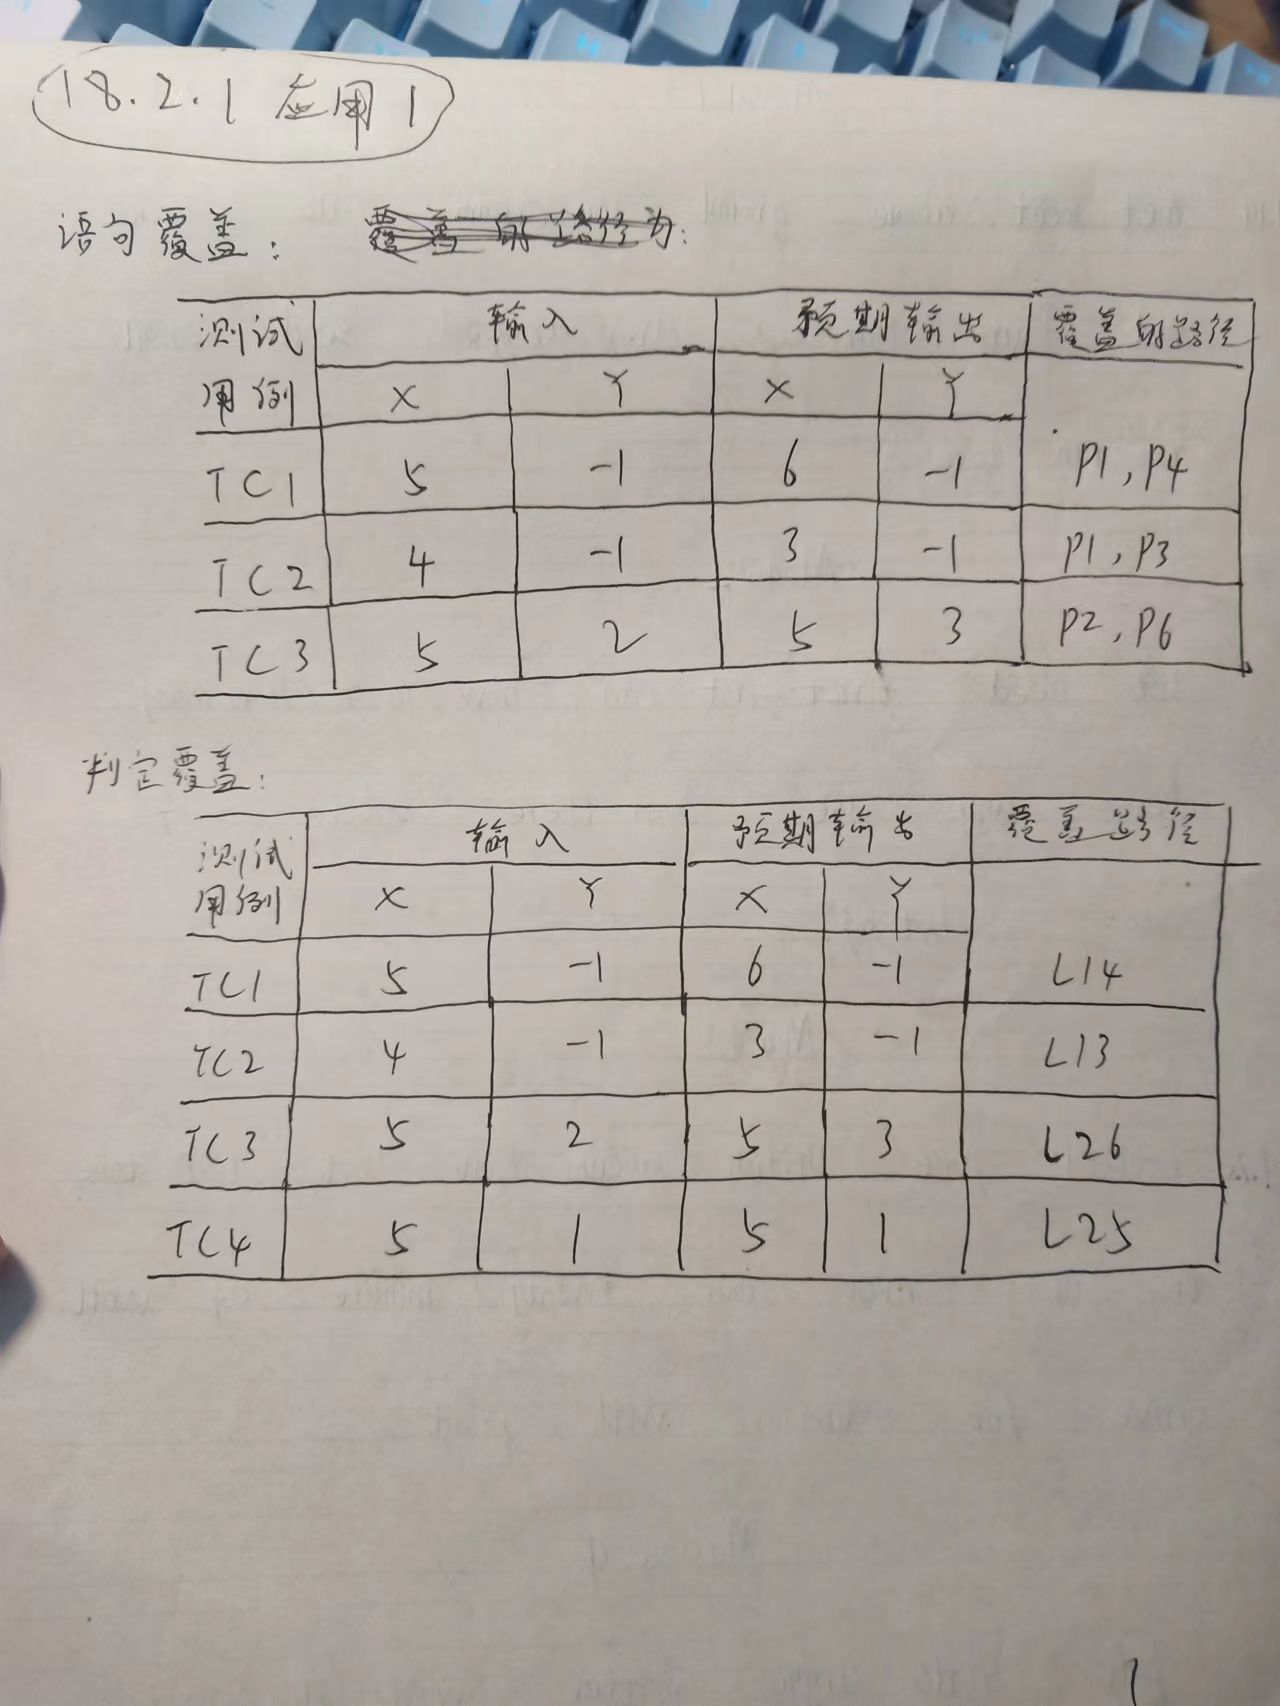 18.2.1 应用1
语句覆盖: 覆盖的路径为:
测试用例 输入 预期输出 覆盖的路径
X Y X Y
TC1 5 -1 6 -1 P1,P4
TC2 4 -1 3 -1 P1,P3
TC3 5 2 5 3 P2,P6
判定覆盖:
测试用例 输入 预期输出 覆盖路径
X Y X Y
TC1 5 -1 6 -1 L14
TC2 4 -1 3 -1 L13
TC3 5 2 5 3 L26
TC4 5 1 5 1 L25